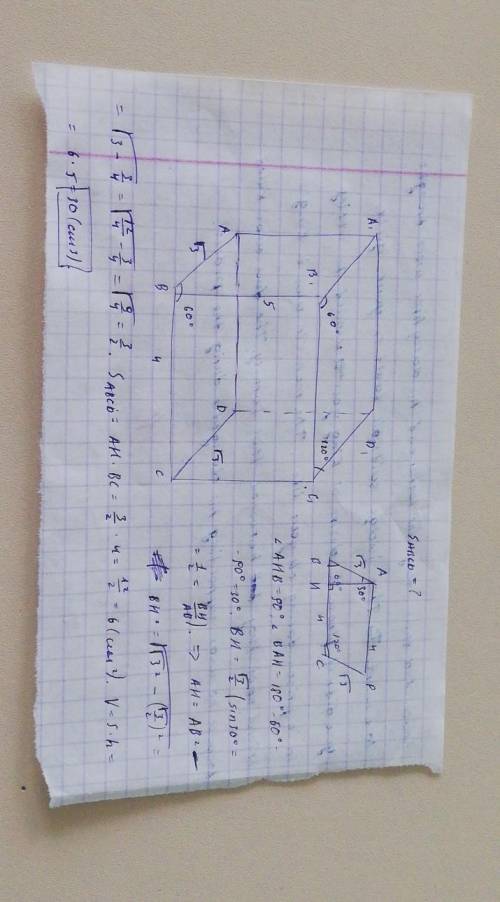 S ABCD = ?
A₁
D₁
B₁
60°
120°
C₁
A
√3
5
D
√3
B
60°
4
C
A
4
D
√3
30°
√3
60°
120°
B
H
4
C
∠AHB = 90°. ∠BAH = 180° - 60° -
- 90° = 30°. BH = √3/2 (sin30° =
= 1/2 = BH/AB). => AH = AB² -
BH² = √(√3² - (√3/2)²) =
= √(3 - 3/4) = √(12/4 - 3/4) = √(9/4) = 3/2. S ABCD = AH · BC = 3/2 · 4 = 12/2 = 6 (см²). V = S · h =
= 6 · 5 = 30 (см3)